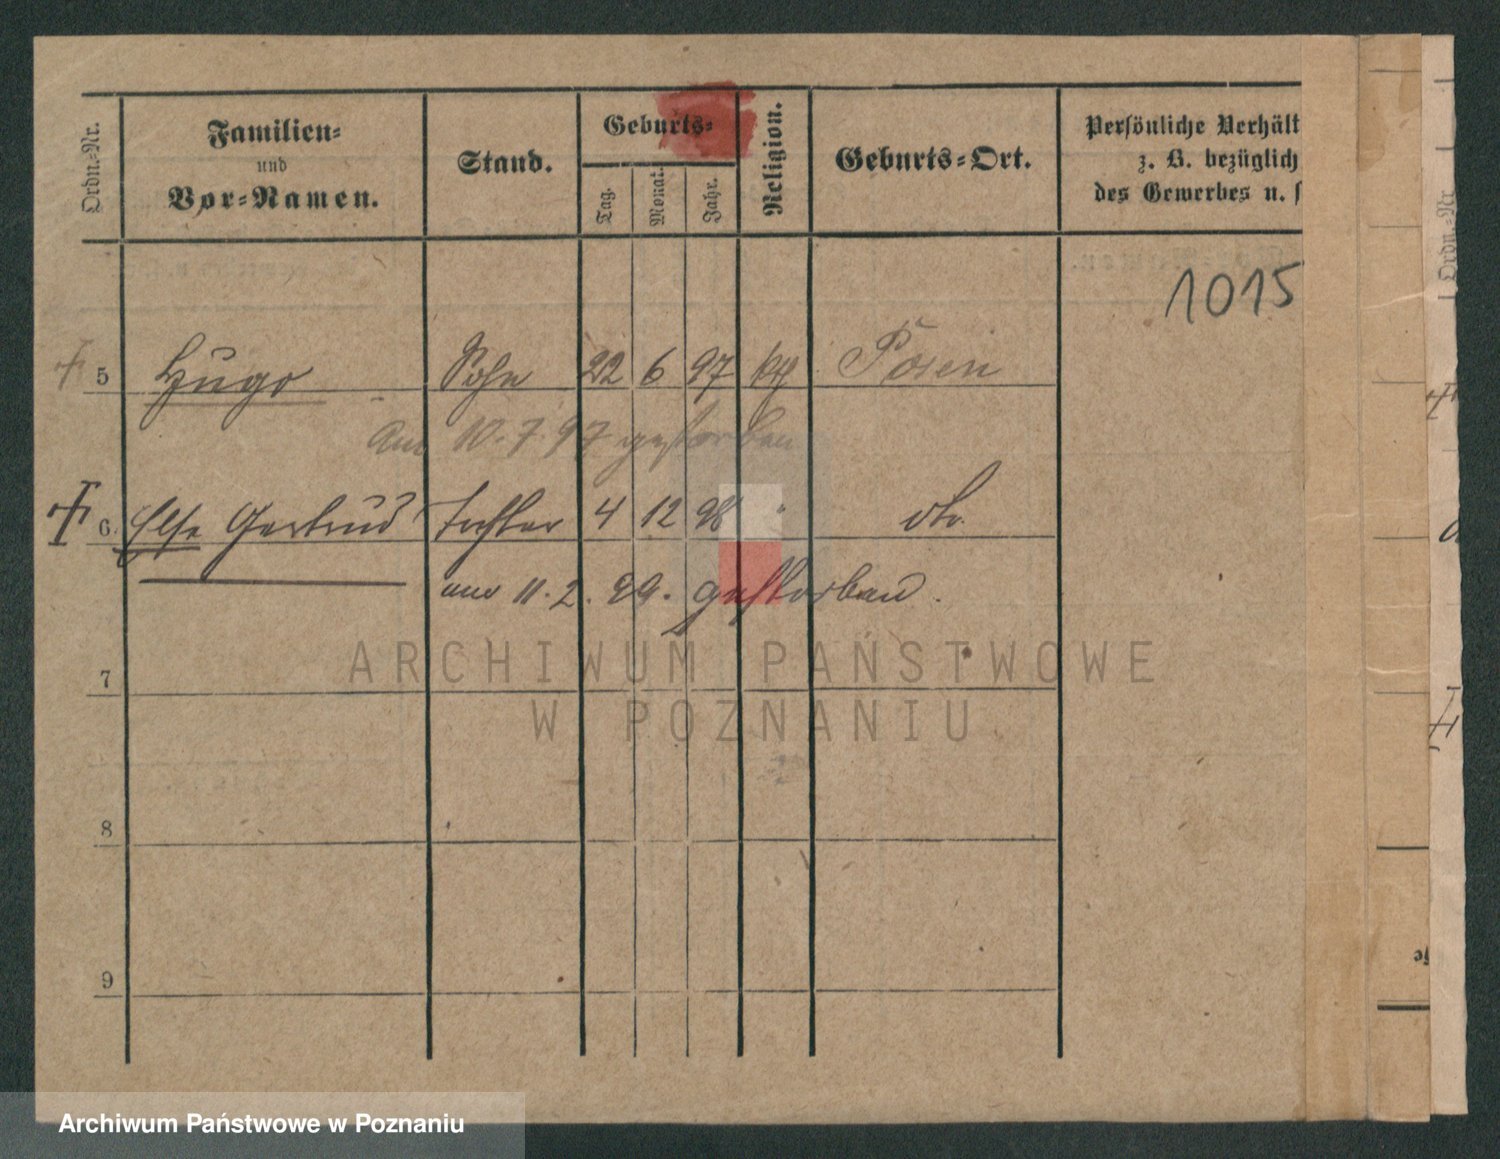 Ordn.-Nr.
Familien-
und
Vor-Namen.
Stand.
Geburts-
Tag.
Monat.
Jahr.
Religion.
Geburts-Ort.
Persönliche Verhält
z. B. bezüglich
des Gewerbes u. s
Ordn.-Nr.
1015
5 Hugo Sohn 22 6 97 kth Posen
am 10.7.97 gestorben
6. Else Gertrud Tochter 4 12 98 " dto.
am 11.2.99. gestorben.
7
8
9
ARCHIWUM PAŃSTWOWE
W POZNANIU
Archiwum Państwowe w Poznaniu